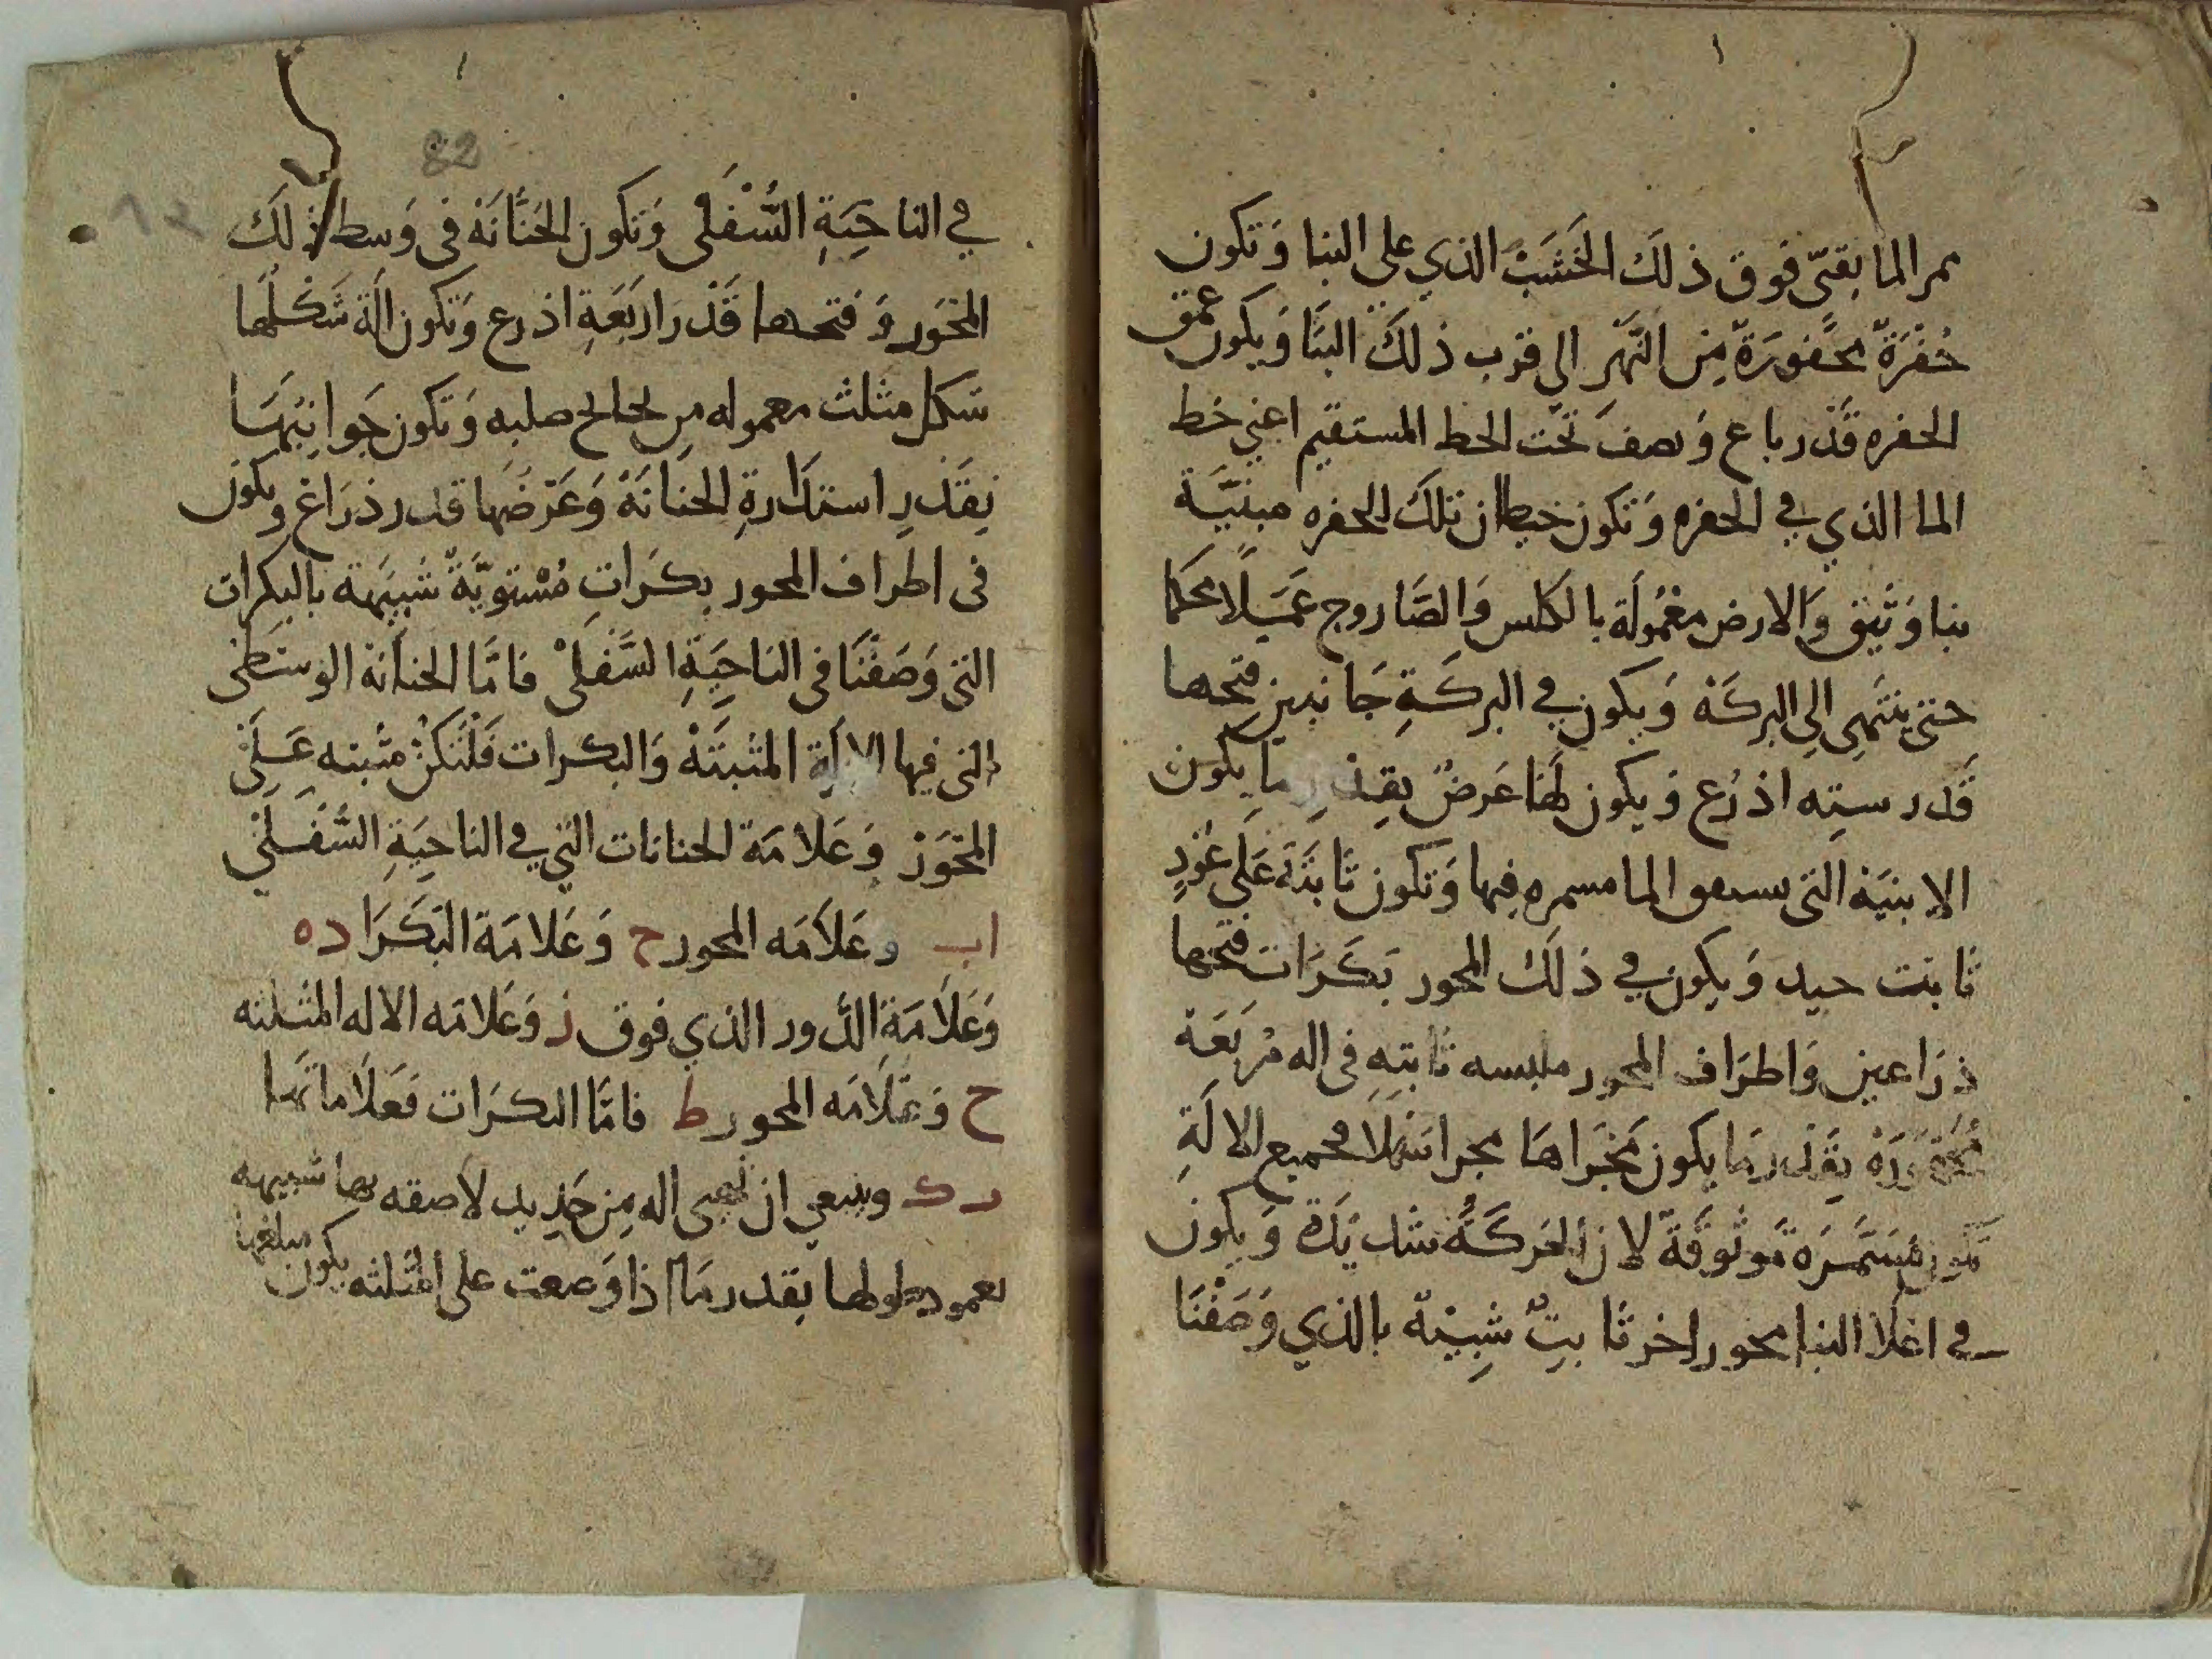 ممر الما بقىّ فوق ذلك الخَشَبْ الذي على البنا وَتكون
حُفْرَةٌ محَّفورَةٌ مِن النَّهَرِ الى قرب ذلكَ البنَا وَيكون عمق
الحفره قَدْر باع وَنصفَ تَحْت الخط المستقيم اعني خط
الما الذي في الحفره وَتكون حيطان تلكَ الحفره مبنيَّة
بنا وَثيق وَالارض مَعْمُولَة بالكلس وَالصَّاروج عَمَلًا محكما
حتى ينتَهِى الِى البركَهْ وَيكون في البركَةِ جَانبين فتحها
قَدر سته اذرُع وَيكون لهَا عَرضٌ بقدرِ مَا يكون
الابنيَة التى الما مسمره فيها وَتكون ثَابتَة عَلى عُوْدٍ
ثابت جيد وَيكون في ذلكَ المحور بَكَرَات فتحها
ذرَاعين وَاطرَاف المحور ملبسه ثابته فى اله مُربَعَة
بقَدر مَا يكون مَجْرَاهَا مجرا سَهْلًا وجميع الالَةِ
تكون مُسَمَّرَة مَوثُوقَة لان الحَركَةُ شديَدة وَيكون
في اعْلا البنا محور اخر ثَابتٌ شَبِيْهٌ بالذي وَصَفْنَا
82
في الناحِيَةِ السُّفْلَى وَتكون الحَنَّانَةْ فى وَسط ذلَك
المَحْوَر وَفتحها قَدْر ارْبَعَةِ اذرع وَتكون الَة شَكلهَا
شكل مثلث معموله من صلبه وَتكون جَوانِبَهَا
بَقَدْرِ استدَارةِ الحنانَةْ وَعَرْضَها قدر ذرَاع وَيكون
فى اطراف المحور بكَرَاتِ مُسْتويَّةً شَبيهَة بالبكرات
التى وَصَفْنَا فى الناحِيَةِ السَّفْلَى فامَّا الحنانة الوسْطَى
التى فيها الالَةِ المثبَتَةْ وَالبكرات فَلْتَكنْ مثْبته عَلَى
المَحْوَرْ وَعَلَامَة الحنانات التي في الناحِيَةِ السُّفْلَي
اب وعَلَامَه المحور ح وَعَلامَة البَكَرَا ده
وَعَلَامَة الدَّور الذي فوق ز وَعَلامَه الاله المثلثه
ح وَعَلَامَه المحور ط فامَّا البكَرَات فعَلَاماتهَا
ك وينبغي ان تهيى اله مِن حَدِيد لاصقه بها شبيهه
بعمود طولها بقدر مَا اذا وَضعت على المثلثه يكون مبلغها